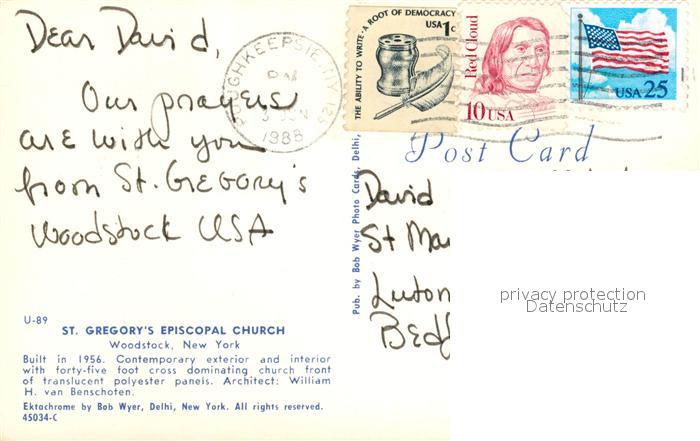 Dear David,
Our prayers
are with you
from St. Gregory's
Woodstock USA
U-89
ST. GREGORY'S EPISCOPAL CHURCH
Woodstock, New York
Built in 1956. Contemporary exterior and interior
with forty-five foot cross dominating church front
of translucent polyester panels. Architect: William
H. van Benschoten.
Ektachrome by Bob Wyer, Delhi, New York. All rights reserved.
45034-C
Pub. by Bob Wyer Photo Cards, Delhi,
POUGHKEEPSIE, NY 125
PM
1988
THE ABILITY TO WRITE · A ROOT OF DEMOCRACY
USA 1c
Red Cloud
10 USA
USA 25
Post Card
David
St Ma
Luton
Bedf
privacy protection
Datenschutz